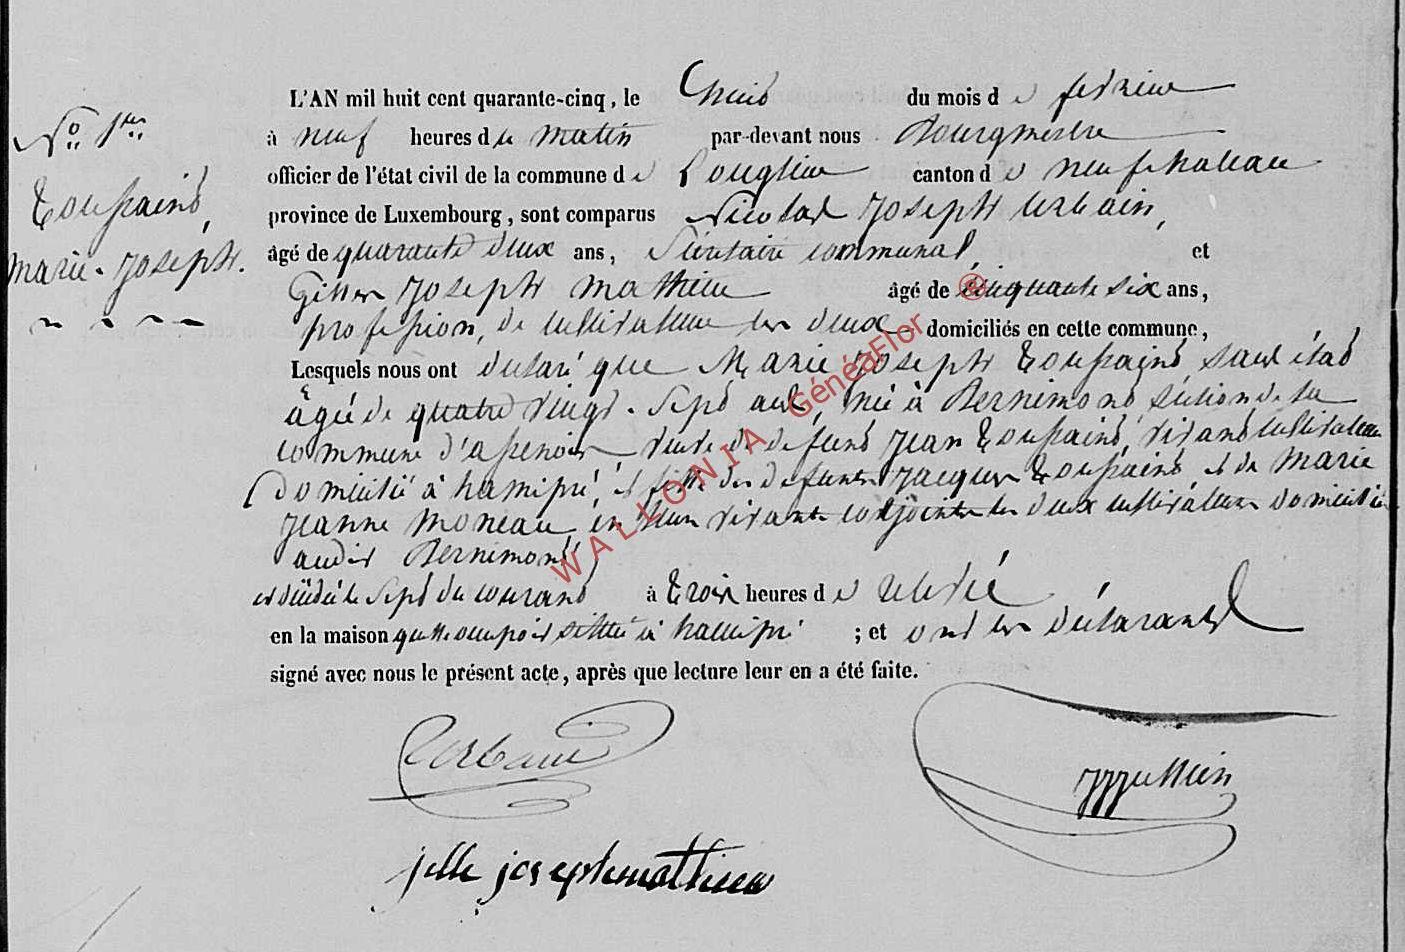 L'AN mil huit cent quarante-cinq, le huit du mois de fevrier
N° 1er
à neuf heures du matin par-devant nous Bourgmestre
officier de l'état civil de la commune de Longlier canton de neufchateau
Toussaint,
province de Luxembourg, sont comparus Nicolas Joseph Urbain,
Marie-Joseph.
âgé de quarante deux ans, Sécretaire communal, et
Gilles Joseph Mathieu âgé de cinquante six ans,
profession, de cultivateur les deux domiciliés en cette commune,
Lesquels nous ont declaré que Marie Joseph Toussaint sans état
âgée de quatre vingt-sept ans, née à Bernimont section de la
commune d'assenois veuve de defunt Jean Toussaint, vivant cultivateur
Domicilié à hamipré, et fille des defunts Jacques Toussaint et de Marie
Jeanne Moneau, en leur vivant conjoints les deux cultivateurs Domiciliés
audit Bernimont,
est décédée le Sept du courant à trois heures de relevée
en la maison quelle occupoit située à hamipré ; et ont les déclarants
signé avec nous le présent acte, après que lecture leur en a été faite.
Urbain
jelle joseph mathieu
WALLONIA GénéaFlor ®